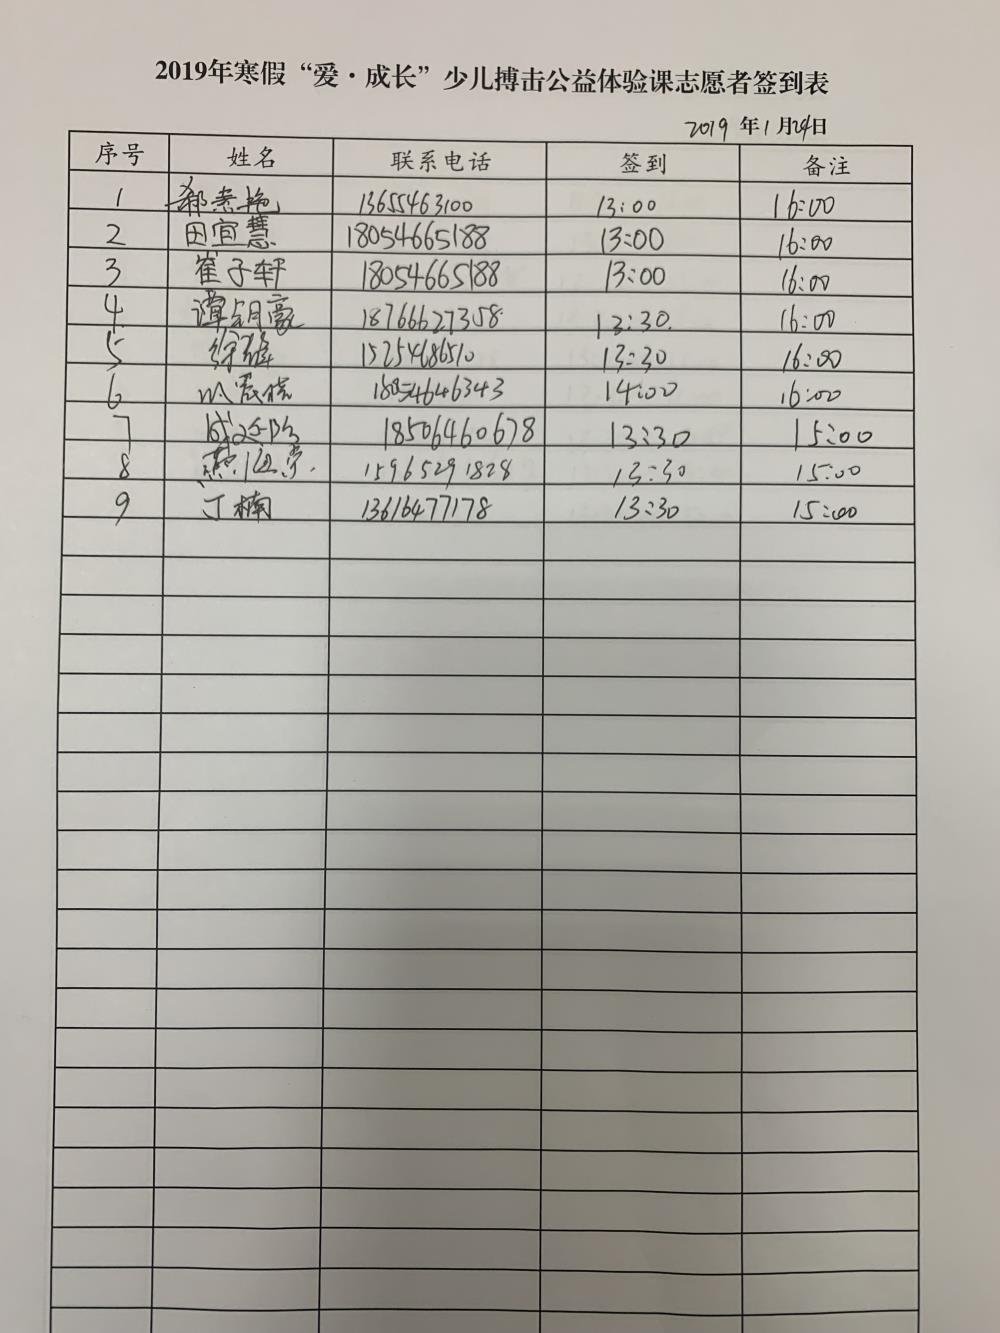 2019年寒假“爱·成长”少儿搏击公益体验课志愿者签到表
2019 年1月24日
序号 姓名 联系电话 签到 备注
1 郗素艳 13655463100 13:00 16:00
2 田宜慧 18054665188 13:00 16:00
3 崔子轩 18054665188 13:00 16:00
4 谭钥豪 18766627358 13:30 16:00
5 15254686510 13:30 16:00
6 18054646343 14:00 16:00
7 18506460678 13:30 15:00
8 15965291828 13:30 15:00
9 丁楠 13616477178 13:30 15:00